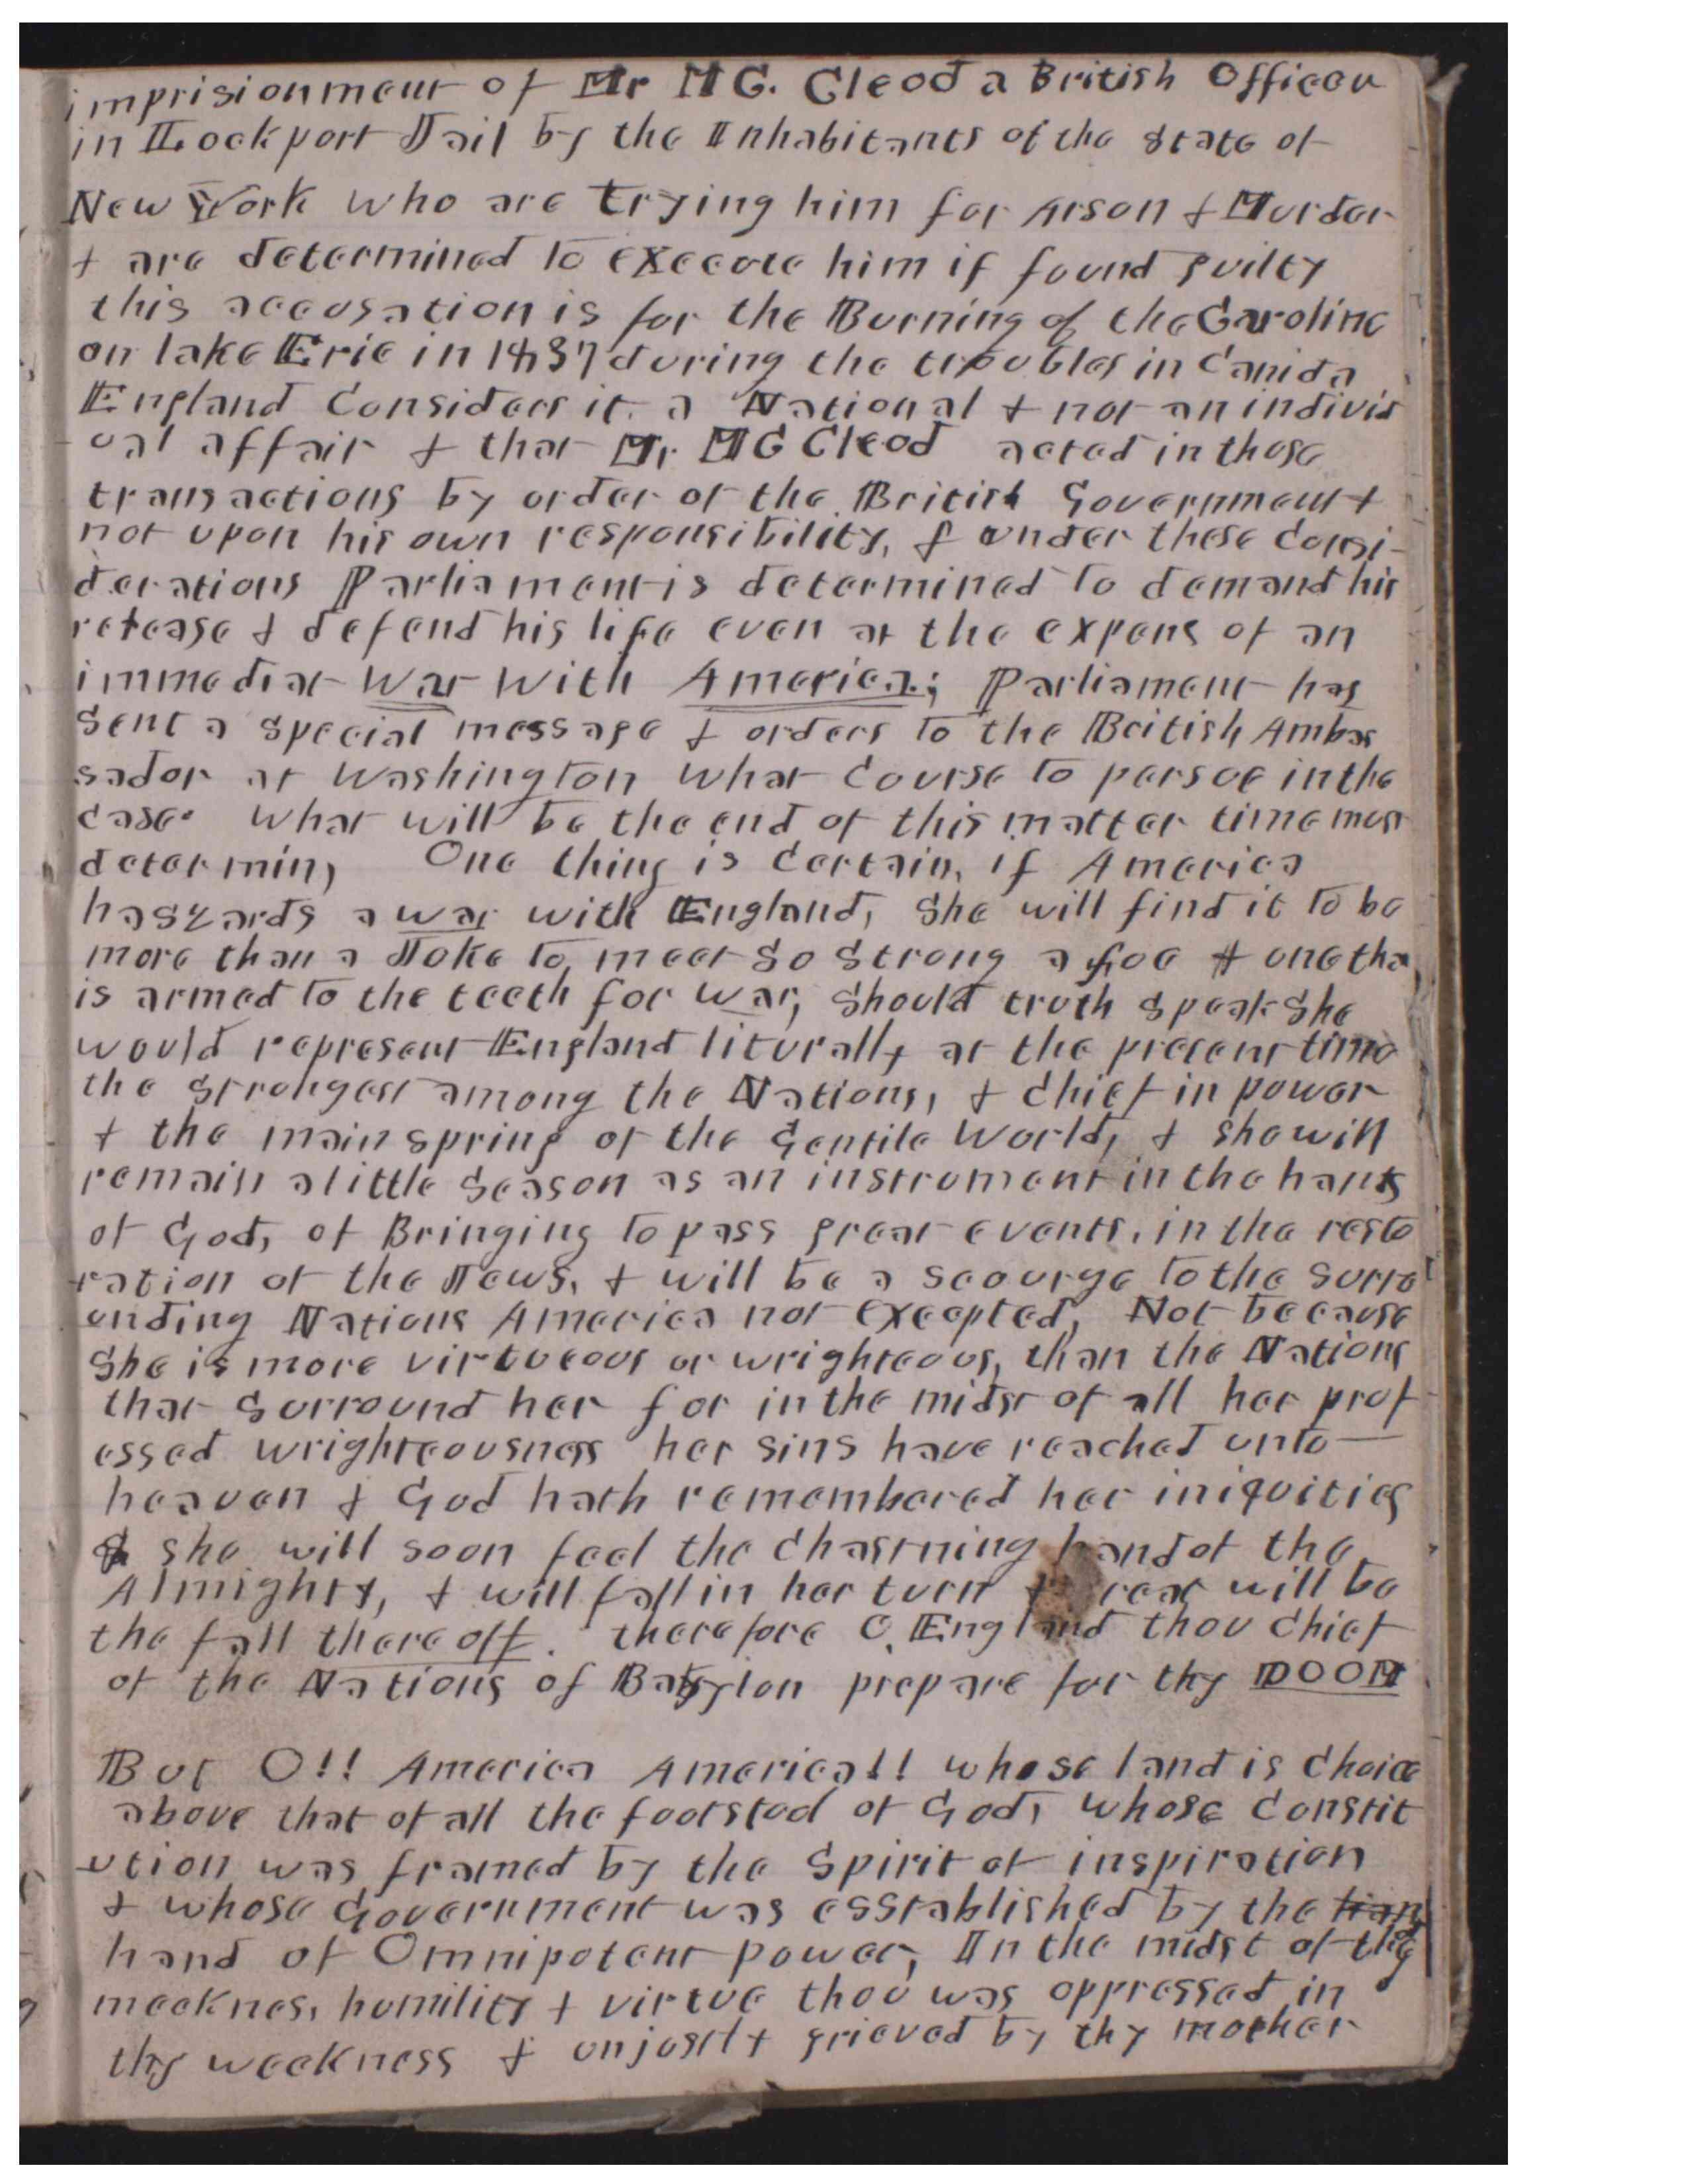 imprisionment of Mr MG. Cleod a British Officer
in Lockport Jail by the Inhabitants of the State of
New York who are trying him for Arson & Murder
& are determined to execute him if found guilty
this accusation is for the Burning of the Caroline
on lake Erie in 1837 during the troubles in Canida
England Considers it a National & not an individ
ual affair & that Mr. MG Cleod acted in those
transactions by order of the British Government &
not upon his own responsibility, & under these Consi-
derations Parliament is determined to demand his
release & defend his life even at the expens of an
immediat war with America; Parliament has
sent a special message & orders to the British Ambas
sador at Washington what Course to persue in the
case. what will be the end of this matter time must
determin, One thing is Certain, if America
haszards a war with England, She will find it to be
more than a Joke to meet so strong a foe & one tha
is armed to the teeth for war, Should truth speak she
would represent England liturally at the present time
the strongest among the Nations, & Chief in power
& the main spring of the Gentile World, & she will
remain a little Season as an instrument in the hands
of God, of Bringing to pass great events, in the resto
ration of the Jews, & will be a scourge to the surro
unding Nations America not excepted, Not because
She is more virtueous or wrighteous, than the Nations
that Surround her for in the midst of all her prof
essed wrighteousness her sins have reached unto
heaven & God hath remembered her iniquities
& she will soon feel the Chastning hand of the
Almighty, & will fall in her turn & reat will be
the fall thereoff. therefore O, England thou Chief
of the Nations of Babylon prepare for thy DOOM
But O!! America America!! whose land is Choice
above that of all the footstool of God, whose Constit
ution was framed by the Spirit of inspiration
& whose Government was esstablished by the han
hand of Omnipotent power, In the midst of thy
meeknes, humility & virtue thou was oppressed in
thy weekness & unjustly grieved by thy mother